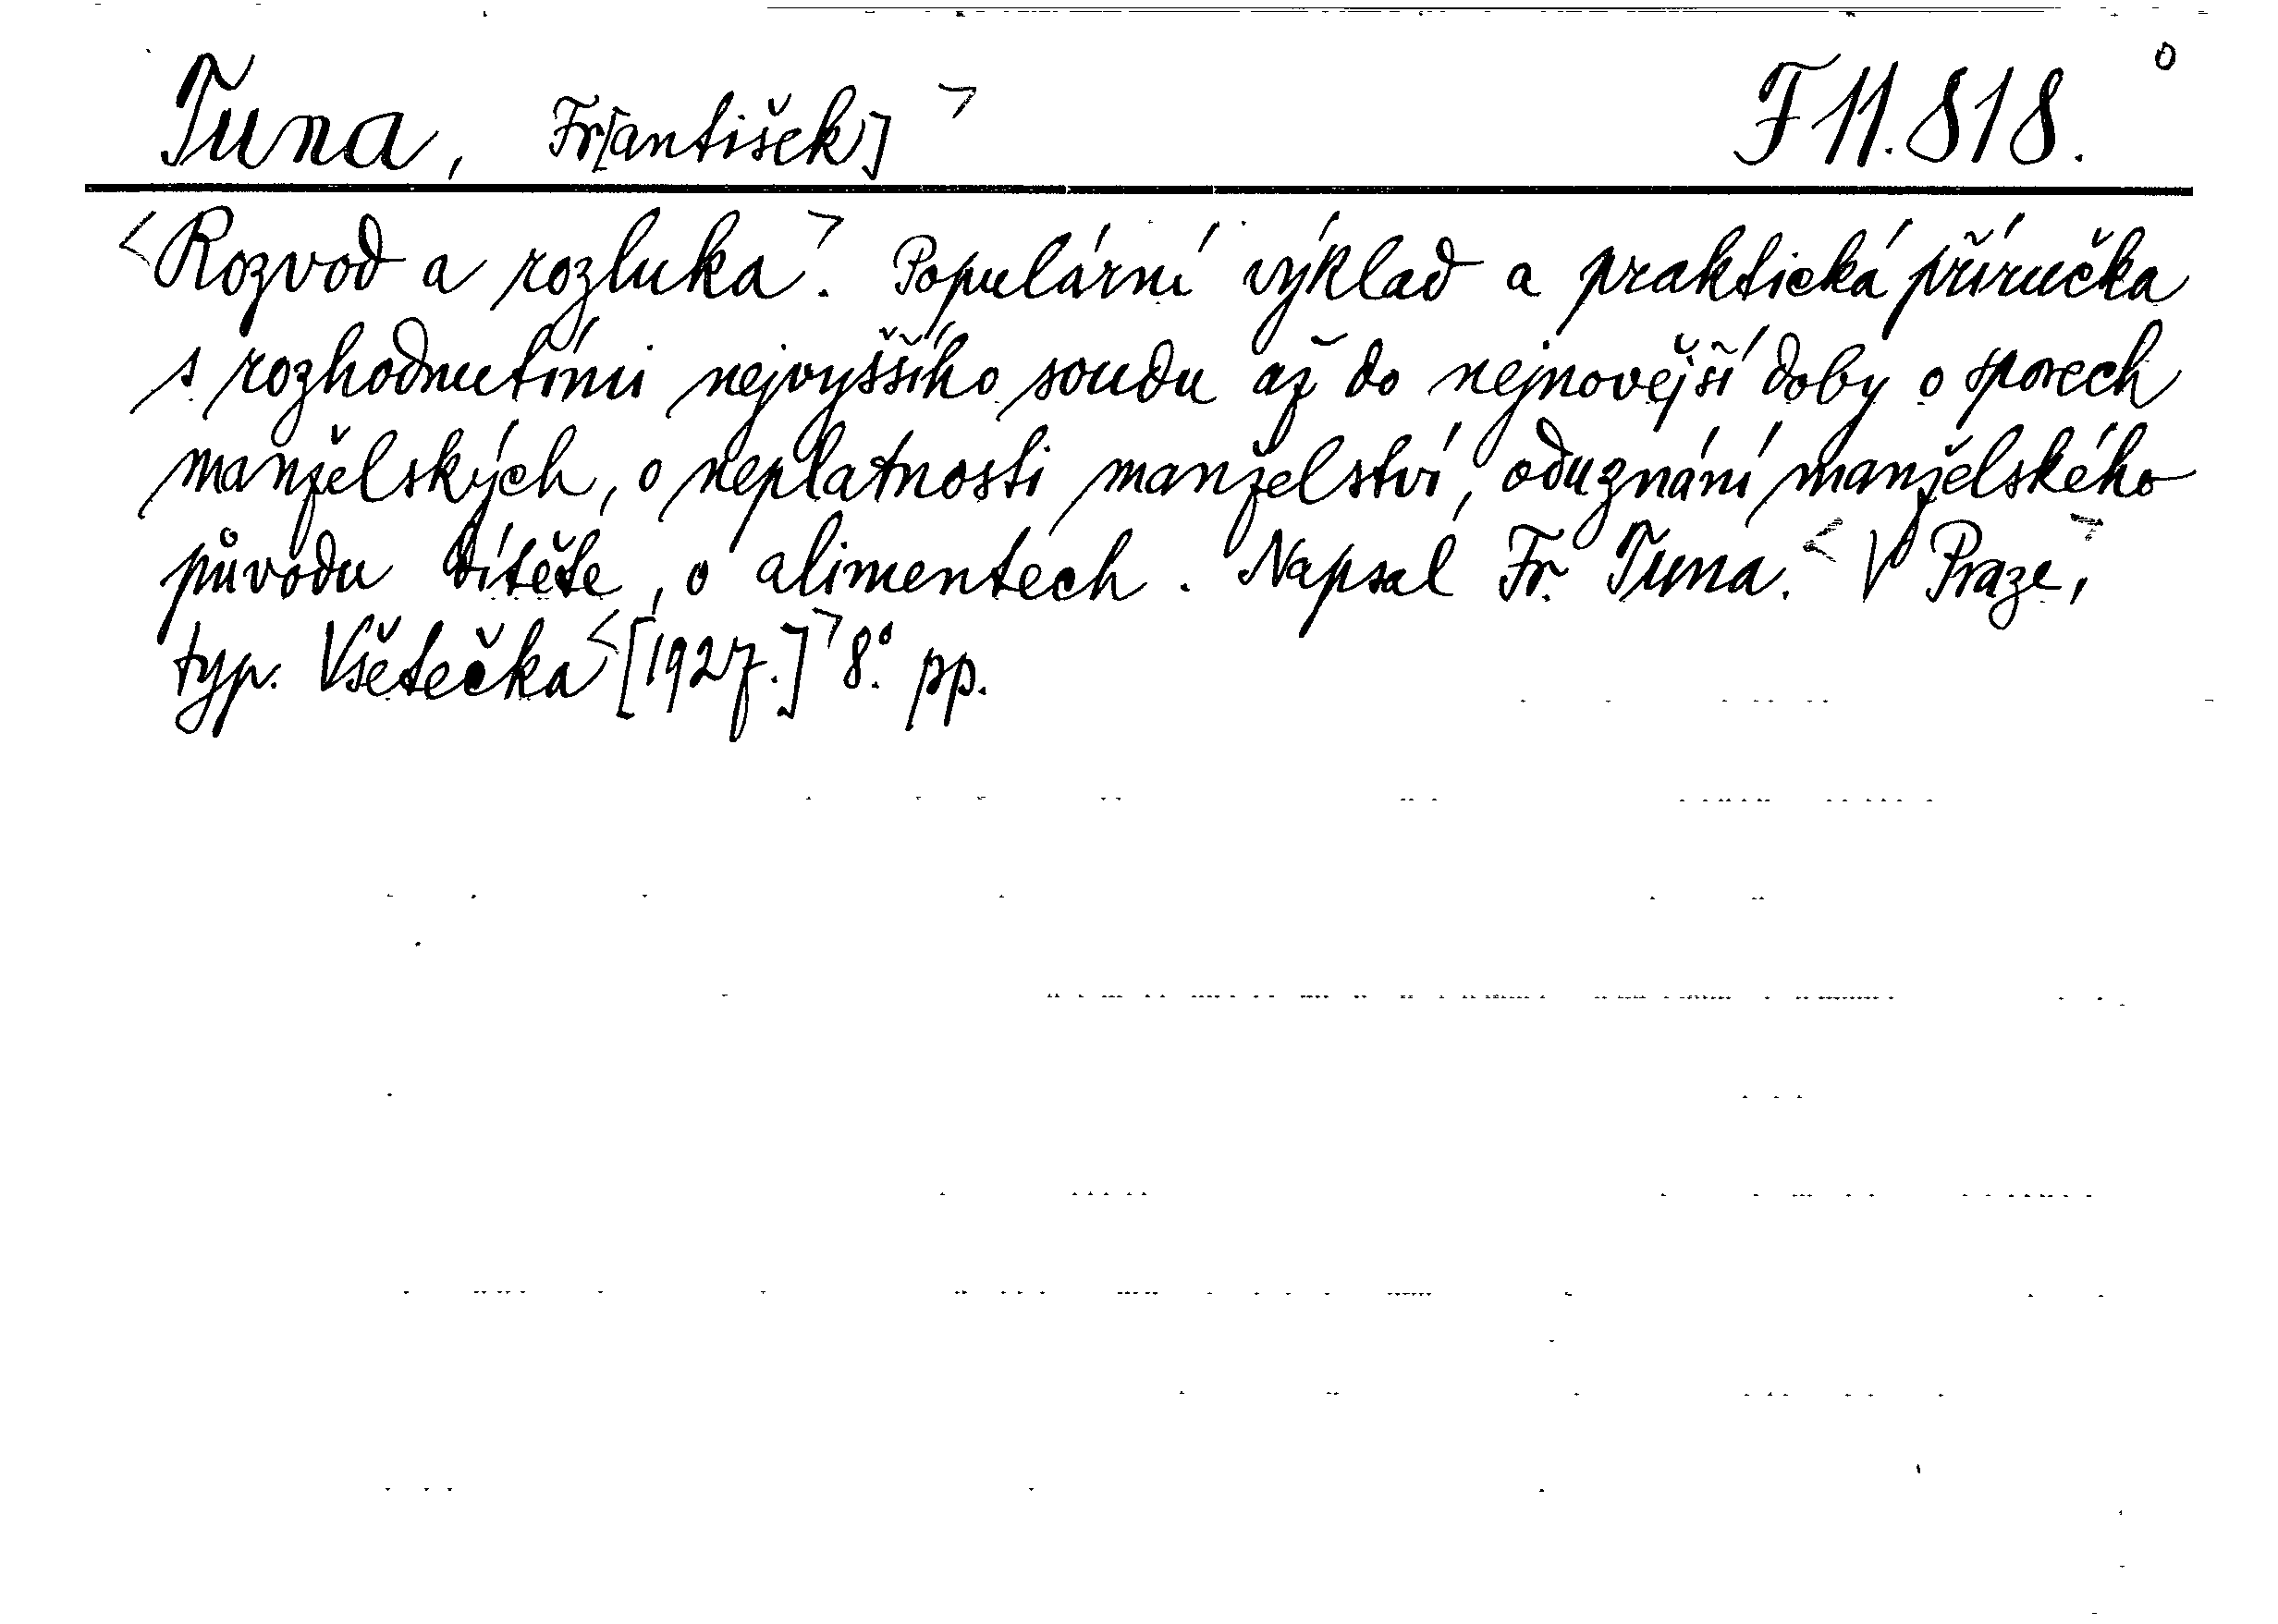 Tuna, Fr[antišek] > F 11.818. o
<Rozvod a rozluka>. Populární výklad a praktická příručka
s rozhodnutími nejvyššího soudu až do nejnovější doby o sporech
manželských, o neplatnosti manželství, oduznání manželského
původu dítěte, o alimentech. Napsal Fr. Tuna. <V Praze,>
typ. Všetečka <[1927.]> 8°. pp.